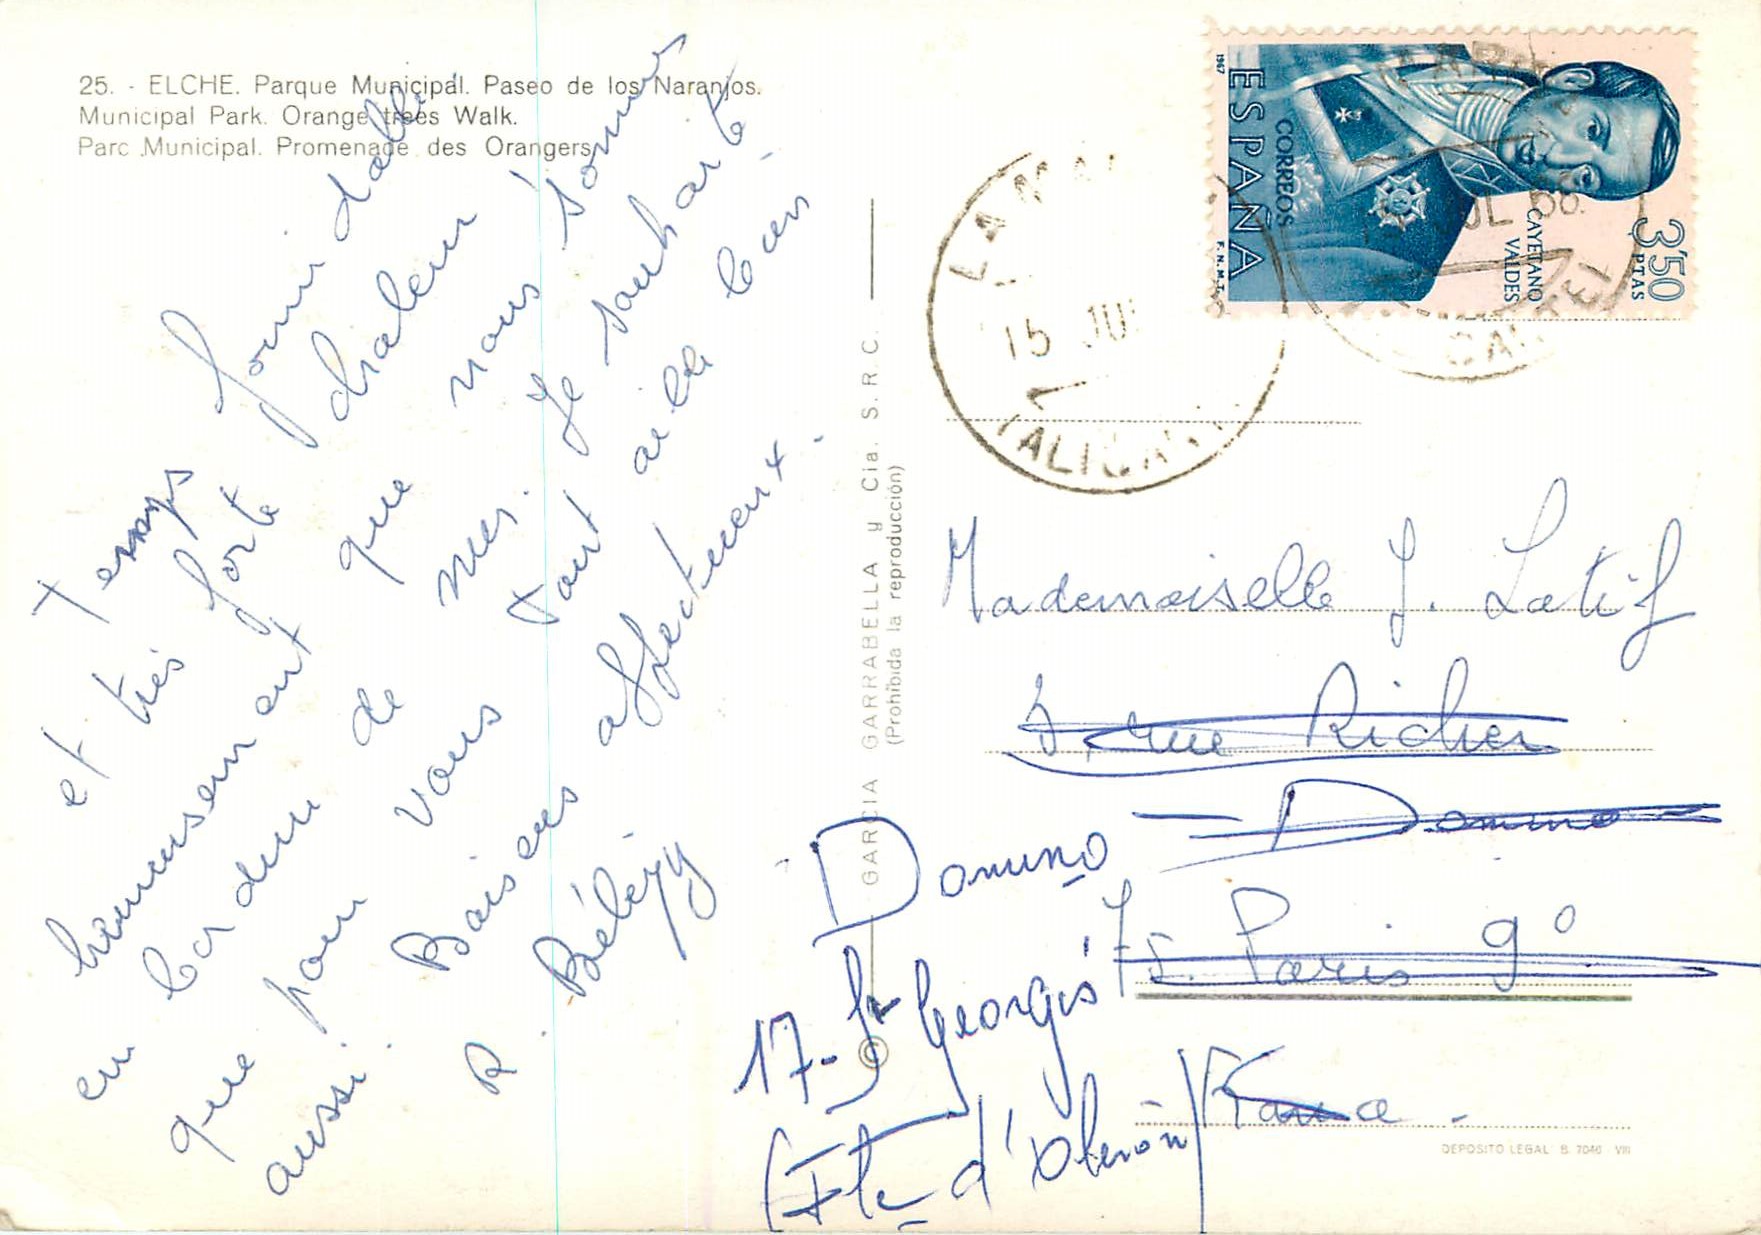 25. - ELCHE. Parque Municipal. Paseo de los Naranjos.
Municipal Park. Orange trees Walk.
Parc Municipal. Promenade des Orangers.
Temps formidable
et très forte chaleur
heureusement que nous sommes
en bordure de mer. Je souhaite
que pour vous tout aille bien
aussi. Baisers affectueux.
R. Bélézy
GARCIA GARRABELLA y Cia. S. R. C.
(Prohibida la reproducción)
©
1967
ESPAÑA
F.N.M.T.
CORREOS
CAYETANO
VALDES
3'50
PTAS
15 JUL
ALICANTE
Mademoiselle J. Latif
rue Richer
Domino
Domino
75. Paris 9°
17 - St Georges
(Ile d'Oléron)
France.
DEPOSITO LEGAL B. 7046 VIII